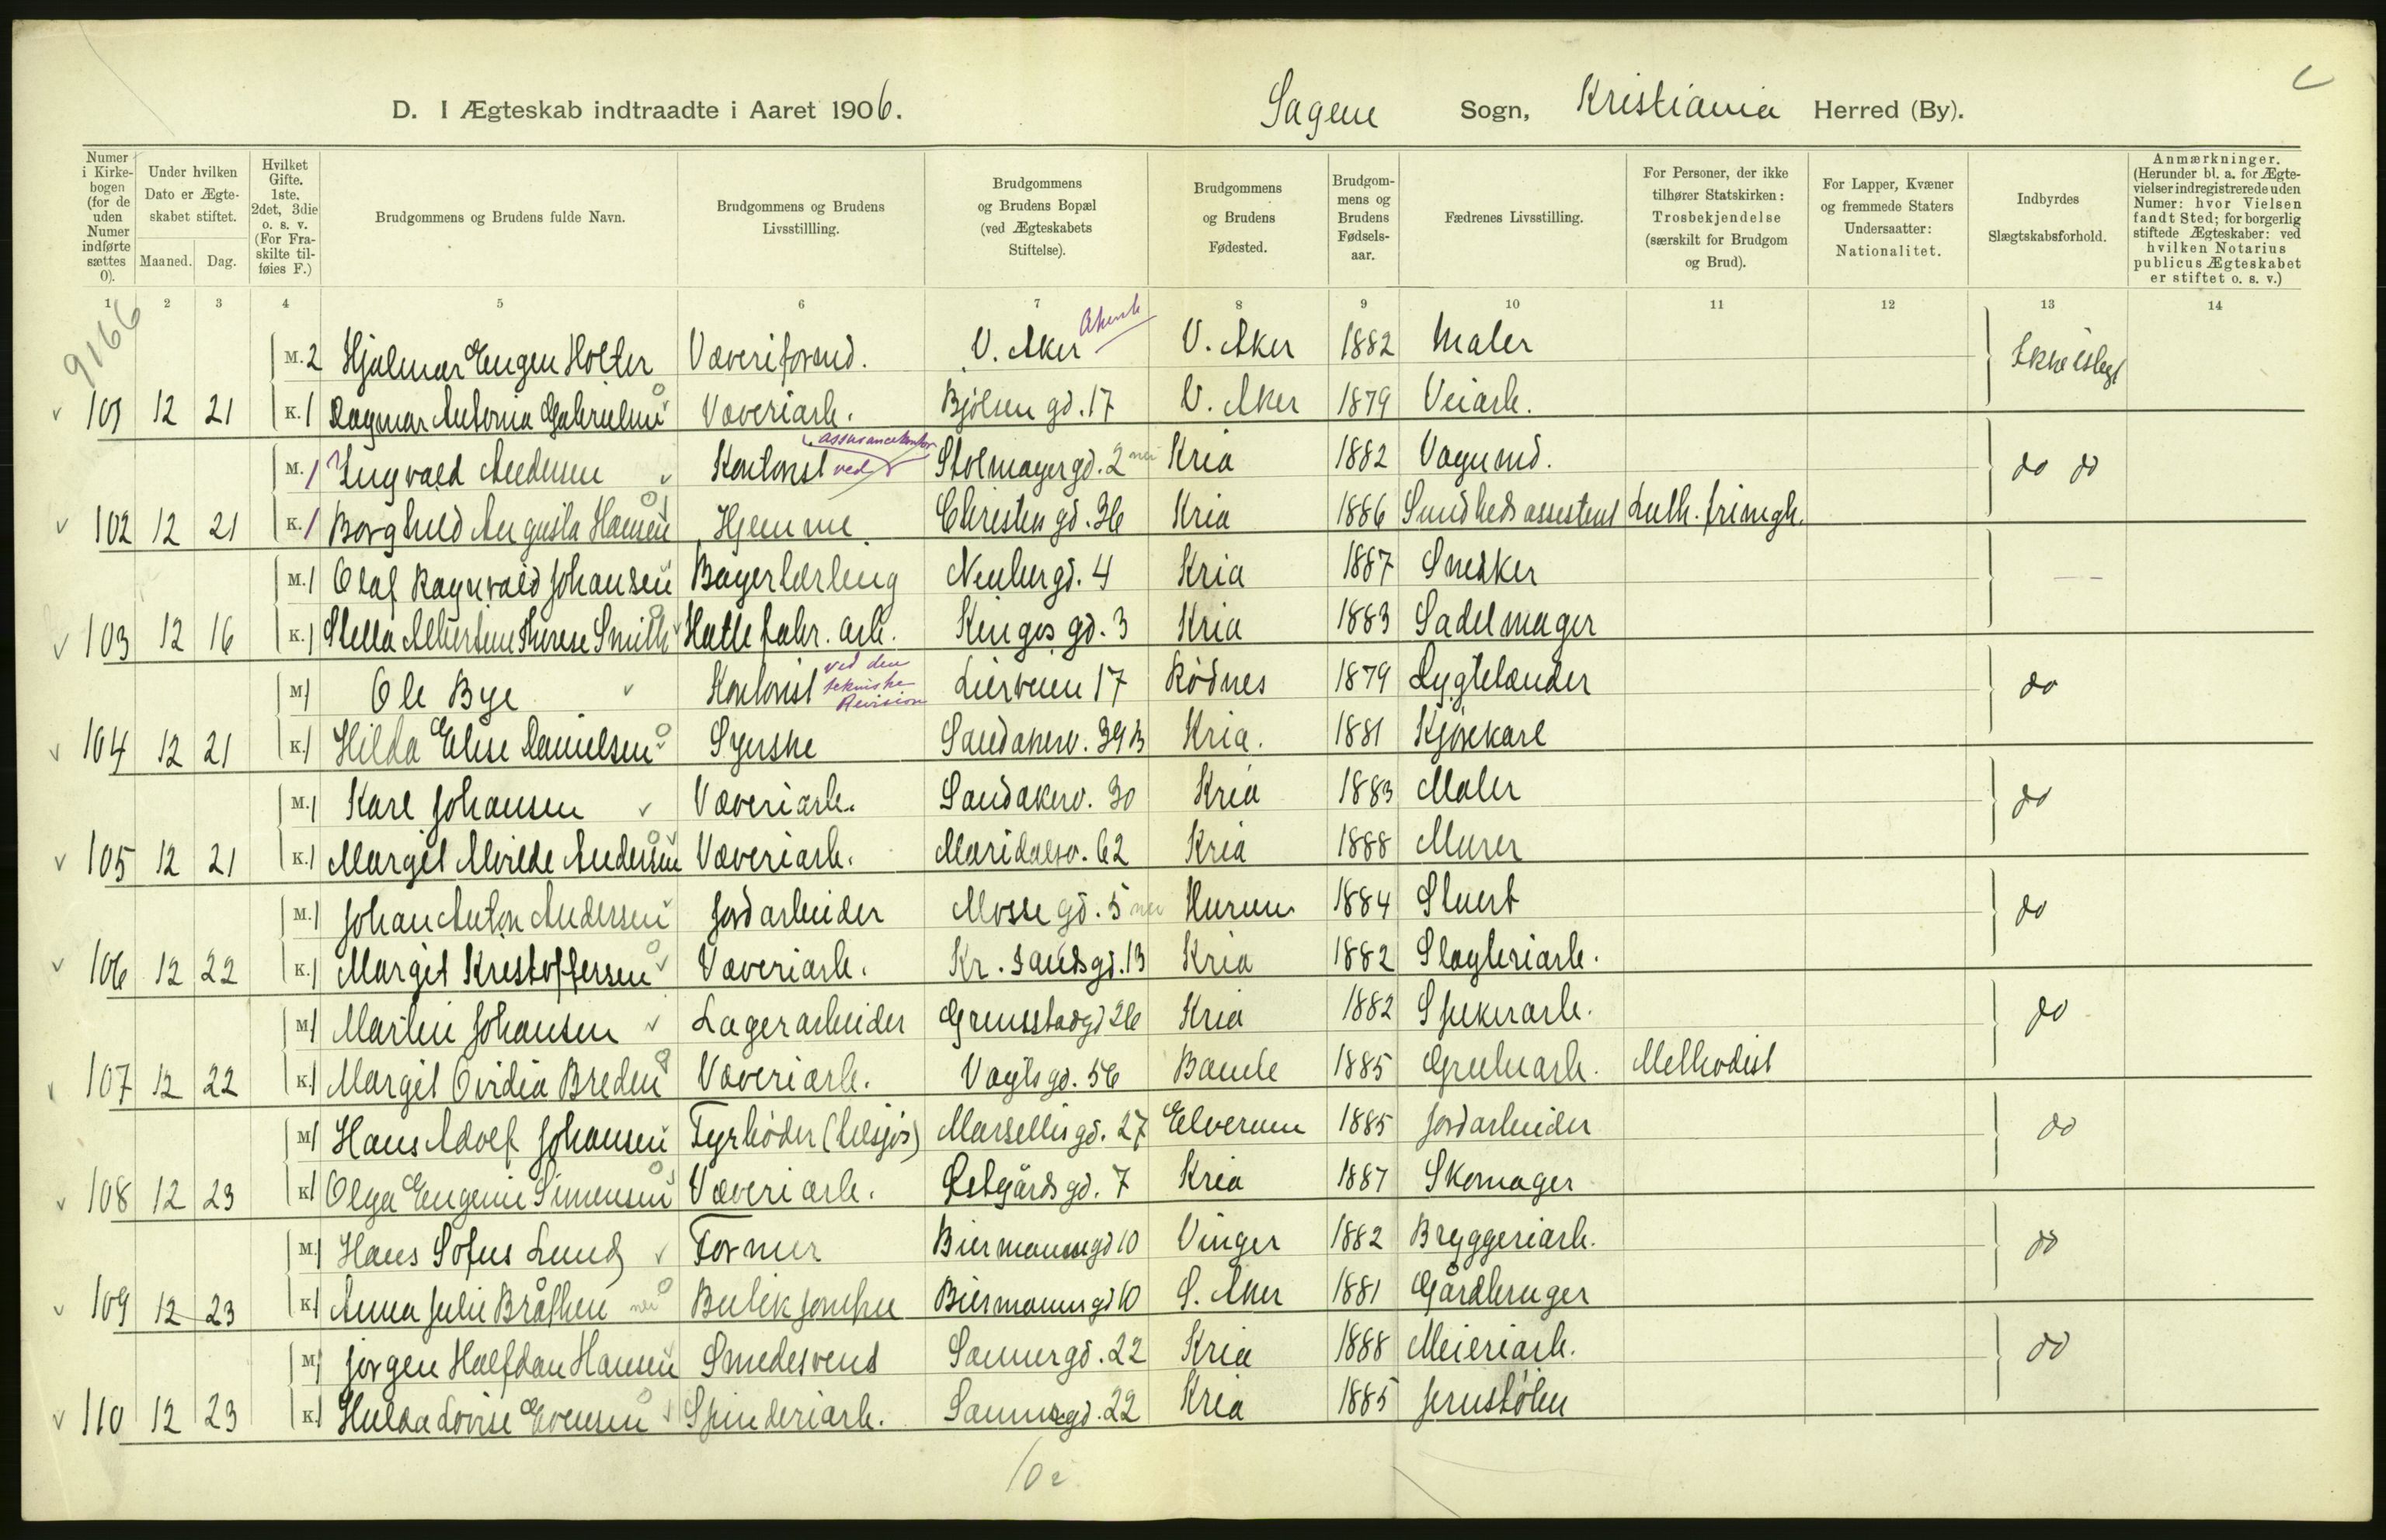 D. I Ægteskab indtraadte i Aaret 1906. Sagene Sogn, Kristiania Herred (By).
Numer i Kirkebogen (for de uden Numer indførte sættes 0). Under hvilken Dato er Ægteskabet stiftet. Maaned. Dag. Hvilket Gifte. 1ste, 2det, 3die o. s. v. (For Fraskilte tilføies F.) Brudgommens og Brudens fulde Navn. Brudgommens og Brudens Livsstillling. Brudgommens og Brudens Bopæl (ved Ægteskabets Stiftelse). Brudgommens og Brudens Fødested. Brudgommens og Brudens Fødselsaar. Fædrenes Livsstilling. For Personer, der ikke tilhører Statskirken: Trosbekjendelse (særskilt for Brudgom og Brud). For Lapper, Kvæner og fremmede Staters Undersaatter: Nationalitet. Indbyrdes Slægtskabsforhold. Anmærkninger. (Herunder bl. a. for Ægtevielser indregistrerede uden Numer: hvor Vielsen fandt Sted; for borgerlig stiftede Ægteskaber: ved hvilken Notarius publicus Ægteskabet er stiftet o. s. v.)
1 2 3 4 5 6 7 8 9 10 11 12 13 14
9166
M. 2 Hjalmar Eugen Holter Væveriformd. V. Aker V. Aker 1882 Maler
101 12 21 K. 1 Dagmar Antonia Gabrielsen Væveriarb. Bjølsen gd. 17 V. Aker 1879 Veiarb.
M. 1 Ingvald Andersen Kontorist ved assurancekontor Stolmager gd. 2 Kria 1882 Vognmd. do do
102 12 21 K. 1 Borghild Augusta Hansen Hjemme Christies gd. 36 Kria 1886 Sundhedsassistent Luth. frimgh.
M. 1 Olaf Ragnvald Johansen Bagerlærling Neubergd. 4 Kria 1887 Snedker
103 12 16 K. 1 Stella Albertine Therese Smith Hattefabr. arb. Kingos gd. 3 Kria 1883 Sadelmager
M 1 Ole Bye Kontorist ved den tekniske Revision Lierveien 17 Rødnes 1879 Lygtetænder do
104 12 21 K. 1 Hilda Elise Danielsen Syerske Sandakerv. 39 B Kria. 1881 Kjørekarl
M. 1 Karl Johansen Væveriarb. Sandakerv. 30 Kria 1883 Maler do
105 12 21 K. 1 Margit Alvilde Andersen Væveriarb. Maridalsv. 62 Kria 1888 Murer
M. 1 Johan Anton Andersen Jordarbeider Mosse gd. 5 Hurum 1884 Stuert do
106 12 22 K. 1 Margit Kristoffersen Væveriarb. Kr. sands gd. 13 Kria 1882 Slagteriarb.
M 1 Martin Johansen Lagerarbeider Grimstadgd 26 Kria 1882 Spikerarb. do
107 12 22 K. 1 Margit Ovidia Breden Væveriarb. Vogts gd. 56 Bamle 1885 Grubearb. Methodist
M 1 Hans Adolf Johansen Fyrbøder (tilsjøs) Marselis gd. 27 Elverum 1885 Jordarbeider do
108 12 23 K 1 Olga Eugenie Simensen Væveriarb. Østgårds gd. 7 Kria 1887 Skomager
M. 1 Hans Sofus Lund Former Biermanns gd 10 Vinger 1882 Bryggeriarb. do
109 12 23 K 1 Anna Julie Bråthen Butikjomfru Biermanns gd 10 S. Aker 1881 Gårdbruger
M 1 Jørgen Halfdan Hansen Smedesvend Sannergd. 22 Kria 1888 Meieriarb. do
110 12 23 K. 1 Hulda Lovise Evensen Spinderiarb. Sannergd. 22 Kria 1885 Jernstøber